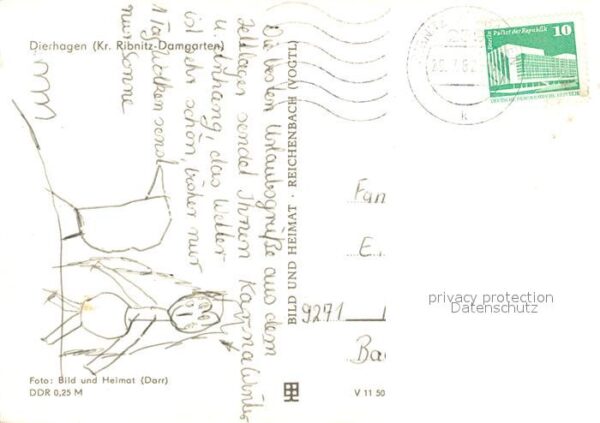 Dierhagen (Kr. Ribnitz-Damgarten)
Die besten Urlaubsgrüße aus dem
Zeltlager sendet Ihnen
u. Anhang, das Wetter
ist sehr schön, bisher nur
1 Tag
nur Sonne
BILD UND HEIMAT · REICHENBACH (VOGTL)
Berlin Palast der Republik
10
DEUTSCHE DEMOKRATISCHE REPUBLIK
k
Fam
E
9271
Ba
privacy protection
Datenschutz
Foto: Bild und Heimat (Darr)
DDR 0,25 M
V 11 50